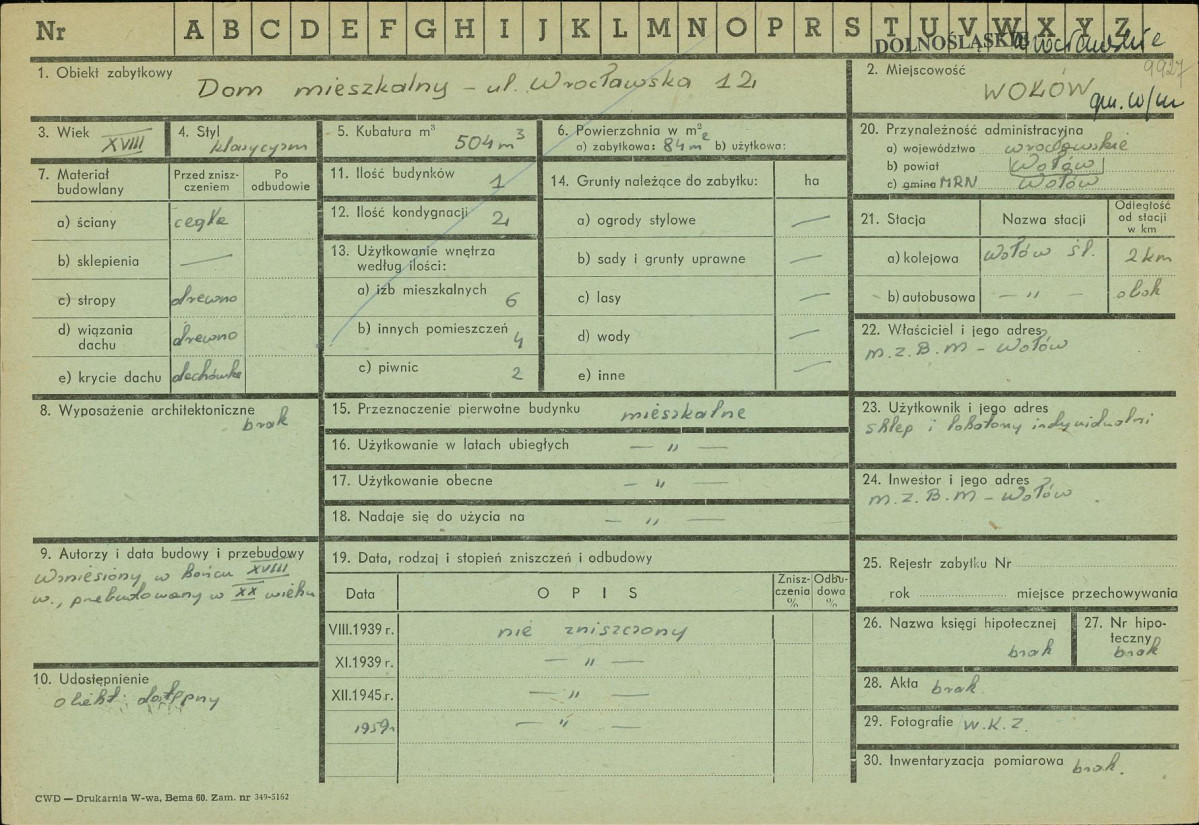 Nr A B C D E F G H I J K L M N O P R S T U V W X Y Z
DOLNOŚLĄSKIE wrocławskie
9927
1. Obiekt zabytkowy
Dom mieszkalny – ul. Wrocławska 12
2. Miejscowość
WOŁÓW
gm. w/m
3. Wiek
XVIII
4. Styl
klasycyzm
5. Kubatura m³
504 m³
6. Powierzchnia w m²
a) zabytkowa: 84 m² b) użytkowa:
20. Przynależność administracyjna
a) województwo wrocławskie
b) powiat Wołów
c) gmina MRN Wołów
7. Materiał budowlany
Przed zniszczeniem
Po odbudowie
a) ściany cegła
b) sklepienia —
c) stropy drewno
d) wiązania dachu drewno
e) krycie dachu dachówka
11. Ilość budynków 1
12. Ilość kondygnacji 2
13. Użytkowanie wnętrza
według ilości:
a) izb mieszkalnych 6
b) innych pomieszczeń 4
c) piwnic 2
14. Grunty należące do zabytku: ha
a) ogrody stylowe —
b) sady i grunty uprawne —
c) lasy —
d) wody —
e) inne —
21. Stacja Nazwa stacji Odległość od stacji w km
a) kolejowa Wołów śl. 2 km
b) autobusowa — " — obok
22. Właściciel i jego adres
M.Z.B.M – Wołów
8. Wyposażenie architektoniczne
brak
15. Przeznaczenie pierwotne budynku mieszkalne
16. Użytkowanie w latach ubiegłych — " —
17. Użytkowanie obecne — " —
18. Nadaje się do użycia na — " —
23. Użytkownik i jego adres
sklep i lokatorzy indywidualni
24. Inwestor i jego adres
M.Z.B.M – Wołów
9. Autorzy i data budowy i przebudowy
Wzniesiony w końcu XVIII
w., przebudowany w XX wieku
10. Udostępnienie
obiekt dostępny
19. Data, rodzaj i stopień zniszczeń i odbudowy
Data OPIS Zniszczenia % Odbudowa %
VIII.1939 r. nie zniszczony
XI.1939 r. — " —
XII.1945 r. — " —
1959 r. — " —
25. Rejestr zabytku Nr
rok miejsce przechowywania
26. Nazwa księgi hipotecznej
brak
27. Nr hipoteczny
brak
28. Akta brak
29. Fotografie W.K.Z.
30. Inwentaryzacja pomiarowa brak.
CWD — Drukarnia W-wa, Bema 60. Zam. nr 349-5162